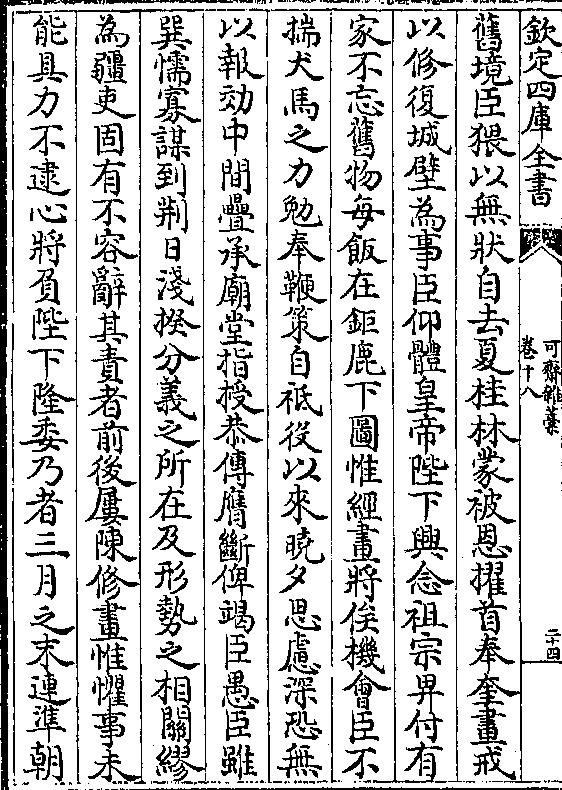 欽定四庫全書
可齋雜藁
卷十八
二十四
舊境臣猥以無狀自去夏桂林蒙被恩擢首奉奎畫戒
以修復城壁為事臣仰體皇帝陛下興念祖宗畀付有
家不忘舊物每飯在鉅鹿下圖惟經畫將俟機會臣不
揣犬馬之力勉奉鞭策自祗役以來曉夕思慮深恐無
以報効中間疊承廟堂指授恭傳膺斷俾竭臣愚臣雖
巽懦寡謀到荆日淺揆分義之所在及形勢之相關繆
為疆吏固有不容辭其責者前後屢陳修畫惟懼事未
能具力不逮心將負陛下隆委乃者三月之末連準朝